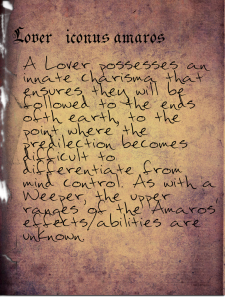 Lover iconus amaros
A Lover possesses an
innate charisma that
ensures they will be
followed to the ends
ofth earth, to the
point where the
predilection becomes
difficult to
differentiate from
mind control. As with a
Weeper, the upper
ranges of the Amaros'
effects/abilities are
unknown.